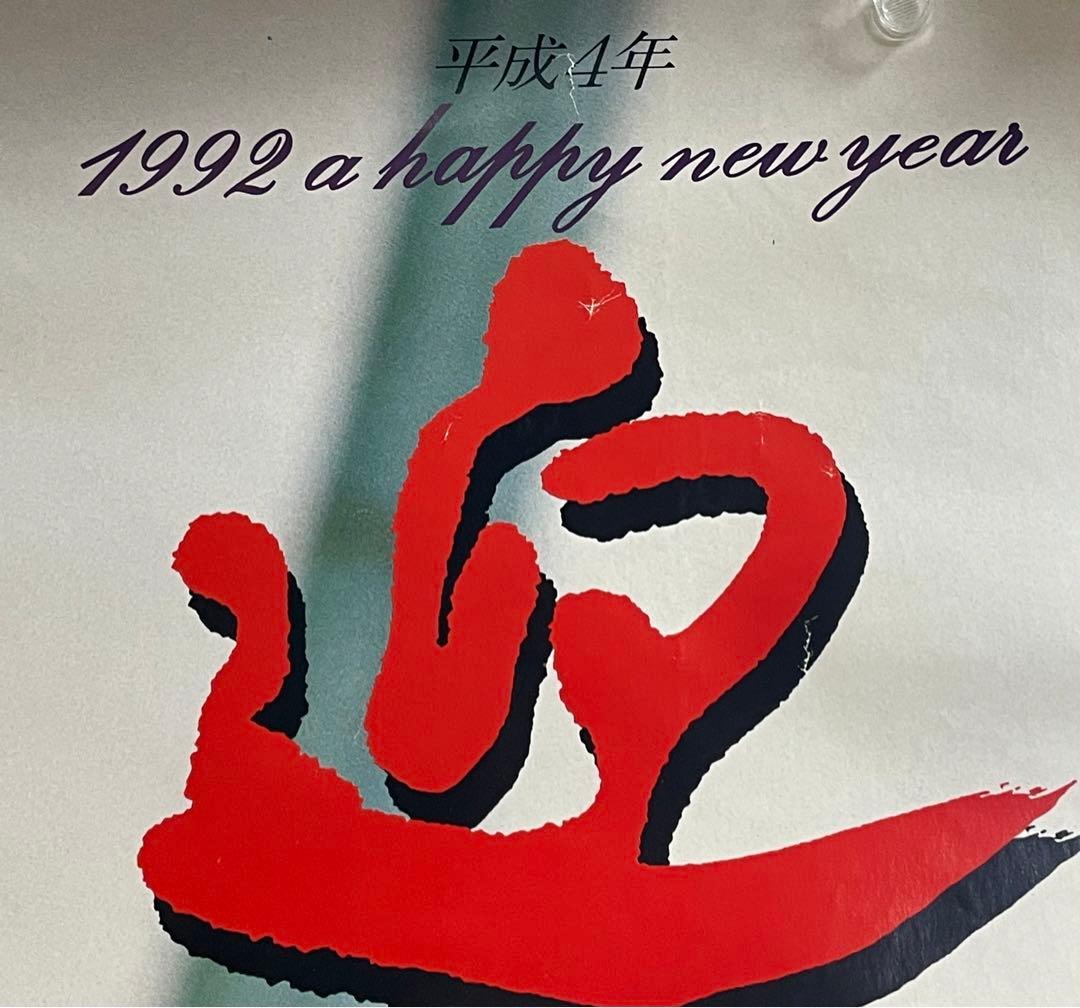 平成4年
1992 a happy new year
迎